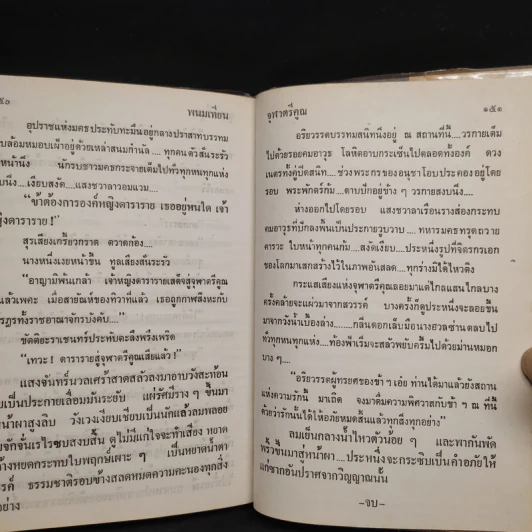 ๕๐ พนมเทียน
อุปราชแห่งมคธ ประทับทะมึนอยู่กลางปราสาทบรรทม
บล้อมหมอบเฝ้าอยู่ด้วยเหล่าสนมกำนัล....ทุกคนตัวสั่นระรัว
หน้านึ่ง นักรบชาวมคธกระจายเต็มไปทั่วทุกหนทุกแห่ง
บนึ่ง....เงียบสงัด....แสงชวาลาวอมแวม....
"ข้าต้องการองค์หญิงดาราราย เธออยู่หนใด เจ้า
ญิงดาราราย!"
สุรเสียงเกรี้ยวกราด ตวาดก้อง....
นางหนึ่งเงยหน้าขึ้น ทูลเสียงสั่นระรัว
"อาญามิพ้นเกล้า เจ้าหญิงดารารายเสด็จสู่จุฬาตรีคูณ
แล้วเพคะ เมื่อสายัณห์ของทิวาที่แล้ว เธอถูกภาพสิงหะกับ
รฏรทั้งราชอาณาจักรบังคับ...."
ขัตติยะราเชนทร์ประทับตะลึงพรึงเพริด
"เทวะ! ดารารายสู่จุฬาตรีคูณเสียแล้ว!"
แสงจันทร์นวลเศร้าสาดสลัวลงมาอาบวังสะท้อน
บเป็นประกายเลื่อมมันระยับ แผ่รัศมีราง ๆ ขึ้นมา
น้ำผาสูงลิบ วังเวงเงียบเชียบเป็นนักแล้วลมพลอย
ยจักจั่นเรไรซบสงบสิ้น ดูไม่มีแก่ใจจะทำเสียง หยาด
้างหยดกระทบใบพฤกษ์เผาะ ๆ เป็นหยาดน้ำตา
รค์ ธรรมชาติรอบข้างสลดหมดความคะนองทุกสิ่ง
อย่าง
จุฬาตรีคูณ ๑๕๑
อริยวรรตบรรทมสนิทนึ่งอยู่ ณ สถานที่นี้....วรกายเต็ม
ไปด้วยรอยคมอาวุธ โลหิตอาบกระเซ็นไปตลอดทั้งองค์ ดวง
เนตรทั้งคู่ปิดสนิท....ช่วงพระกรของอนุชาโอบประคองอยู่โดย
รอบ พระพักตร์ก้ม....ดาบปักอยู่ข้าง ๆ วรกายสงบนึ่ง....
ห่างออกไปโดยรอบ แสงชวาลาเรือนรางส่องกระทบ
คมอาวุธที่ปักลงพื้นเป็นประกายวูบวาบ....ทหารมคธทรุดถวาย
คาราะ ใบหน้าทุกคนก้ม....สงัดเงียบ....ประหนึ่งรูปที่จิตรกรเอก
ของโลกมาเสกสร้างไว้ในภาพอันสลด....ทุกร่างมิได้ไหวติง
กระแสเสียงแห่งจุฬาตรีคูณลอยมาแต่ไกลแสนไกลบาง
ครั้งคล้ายจะแผ่วมาจากสวรรค์ บางครั้งก็ดูประหนึ่งจะลอยขึ้น
มาจากวังน้ำเบื้องล่าง....กลิ่นดอกเล็บมือนางอวลซ่านตลบไป
ทั่วทุกหนทุกแห่ง....ท้องฟ้าเริ่มจะสลัวพยับครึ้มไปด้วยม่านหมอก
บาง ๆ....
"อริยวรรตผู้ทรยศของข้า ฯ เอ๋ย ท่านได้มาแล้วยังสถาน
แห่งความรักนี้ มาเถิด จงมาดื่มความพิศวาสกับข้า ฯ ณ ที่นี้
ด้วยว่ารักนั้นได้ให้อภัยหมดสิ้นแล้วทุกสิ่งทุกอย่าง"
ลมเย็นกลางน้ำไหวตัวน้อย ๆ และพากันพัด
พริ้วขึ้นมาสู่หน้าผา....ประหนึ่งจะกระซิบเป็นคำอภัยให้
แก่ซากอันปราศจากวิญญาณนั้น
-จบ-